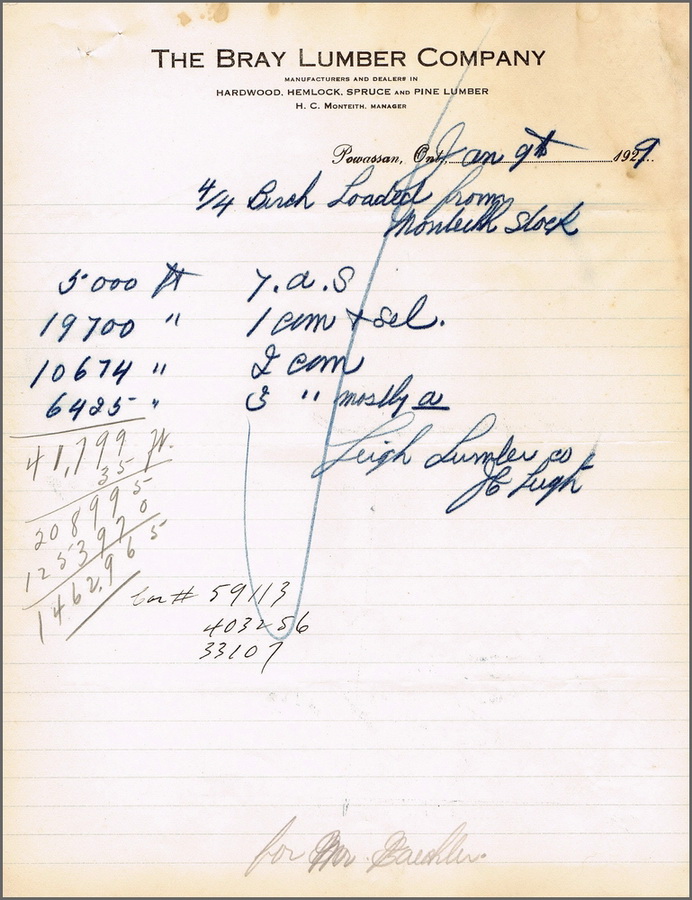 THE BRAY LUMBER COMPANY
MANUFACTURERS AND DEALERS IN
HARDWOOD, HEMLOCK, SPRUCE AND PINE LUMBER
H. C. MONTEITH, MANAGER
Powassan, Ont., Jan 9th 1929
4/4 Birch Loaded from
Monteith Stock
5000 ft F.a.S
19700 " 1 com + sel.
10674 " 2 com
6425 " 3 " mostly a
41,799 ft.
35
208995
125397 0
1462.965
Leigh Lumber co
JC Leigh
Car # 59113
403256
33107
for Mr.